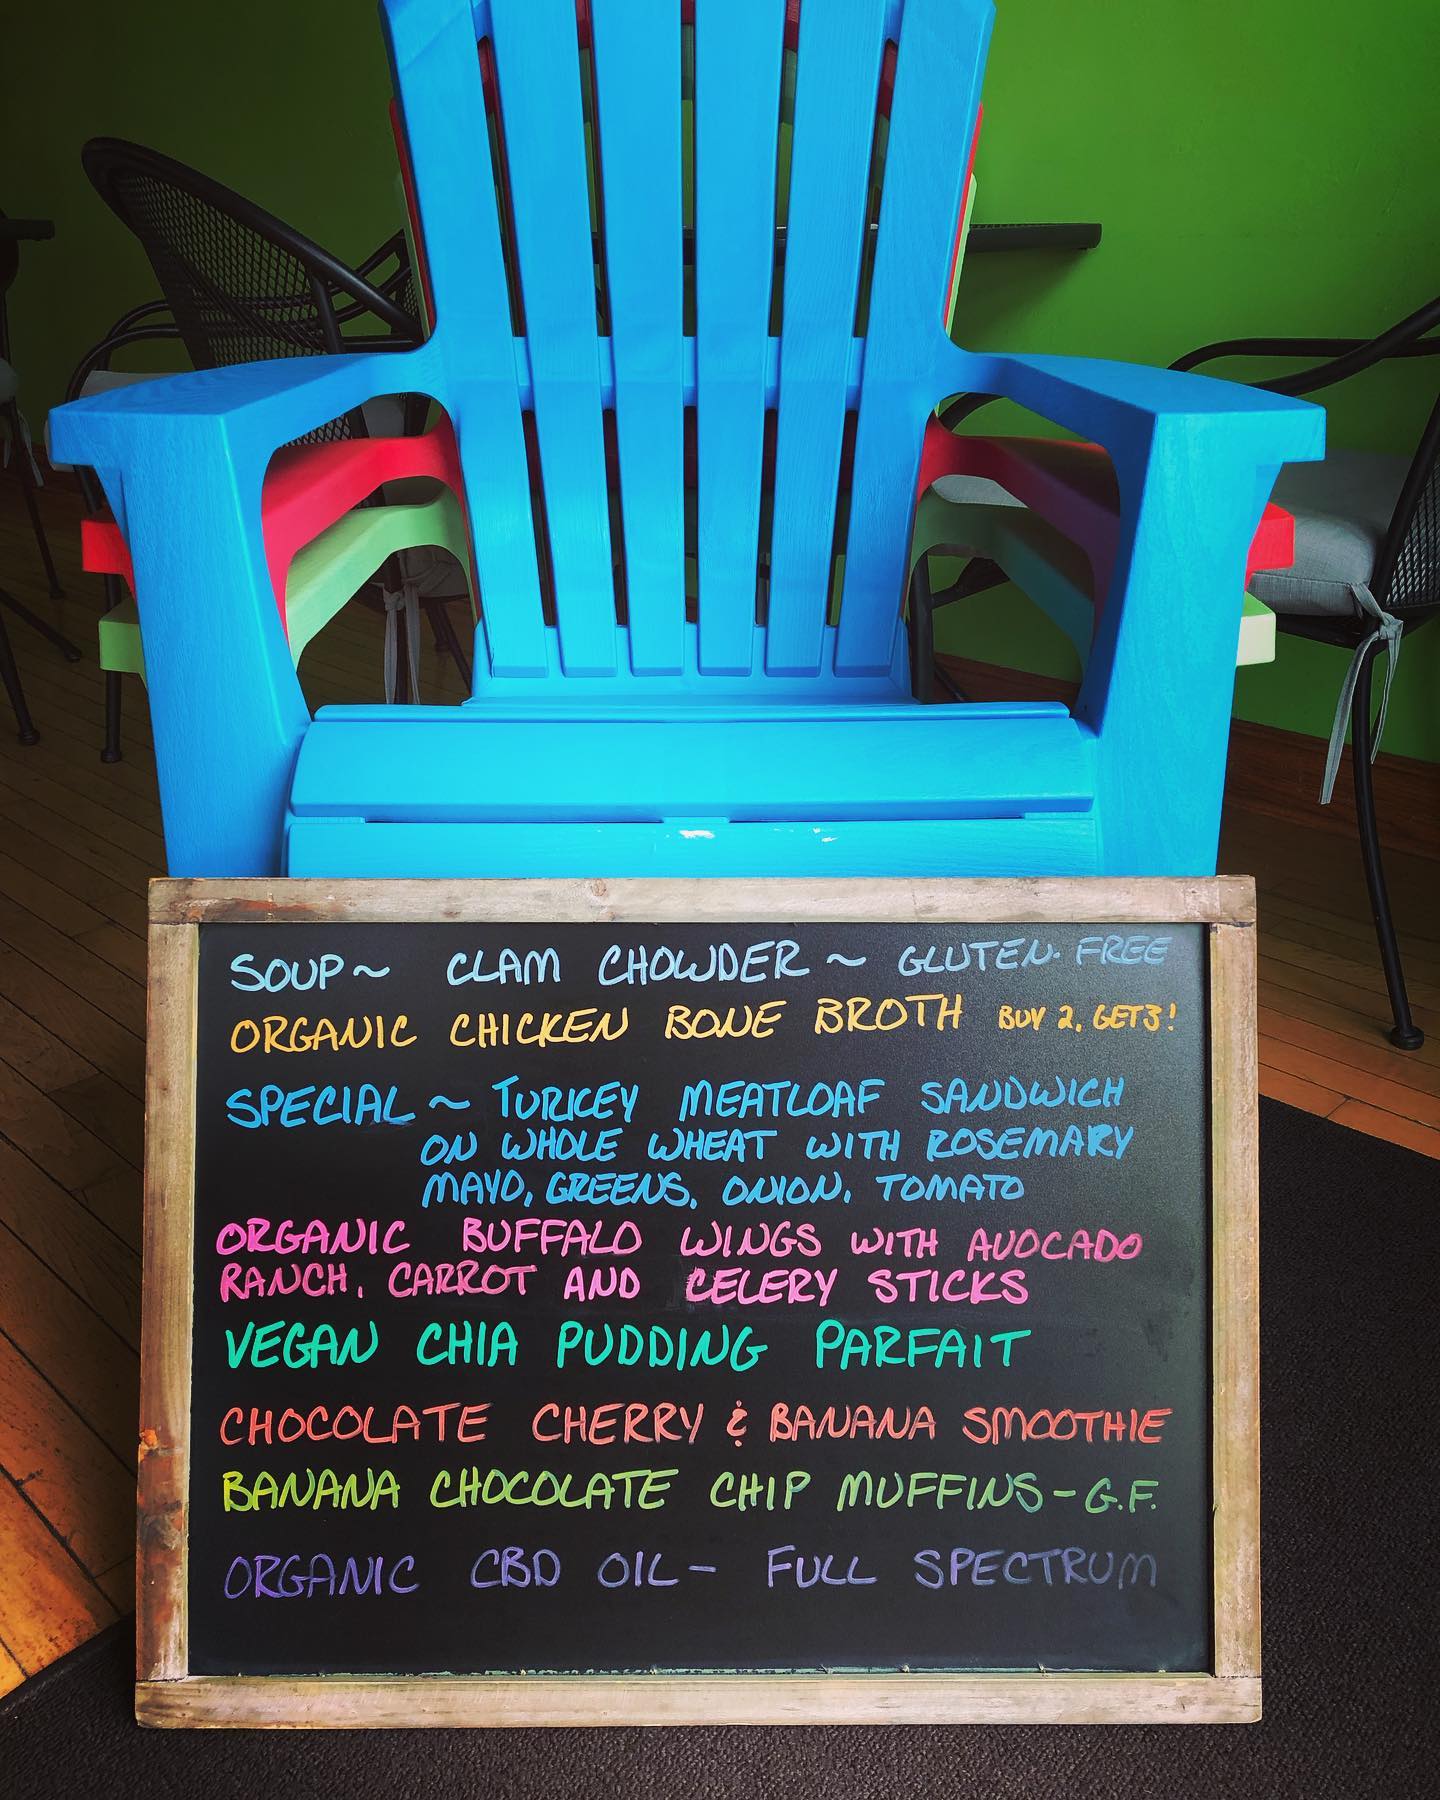 SOUP~ CLAM CHOWDER ~ GLUTEN-FREE
ORGANIC CHICKEN BONE BROTH BUY 2, GET 3!
SPECIAL ~ TURKEY MEATLOAF SANDWICH
ON WHOLE WHEAT WITH ROSEMARY
MAYO, GREENS, ONION, TOMATO
ORGANIC BUFFALO WINGS WITH AVOCADO
RANCH, CARROT AND CELERY STICKS
VEGAN CHIA PUDDING PARFAIT
CHOCOLATE CHERRY & BANANA SMOOTHIE
BANANA CHOCOLATE CHIP MUFFINS - G.F.
ORGANIC CBD OIL - FULL SPECTRUM